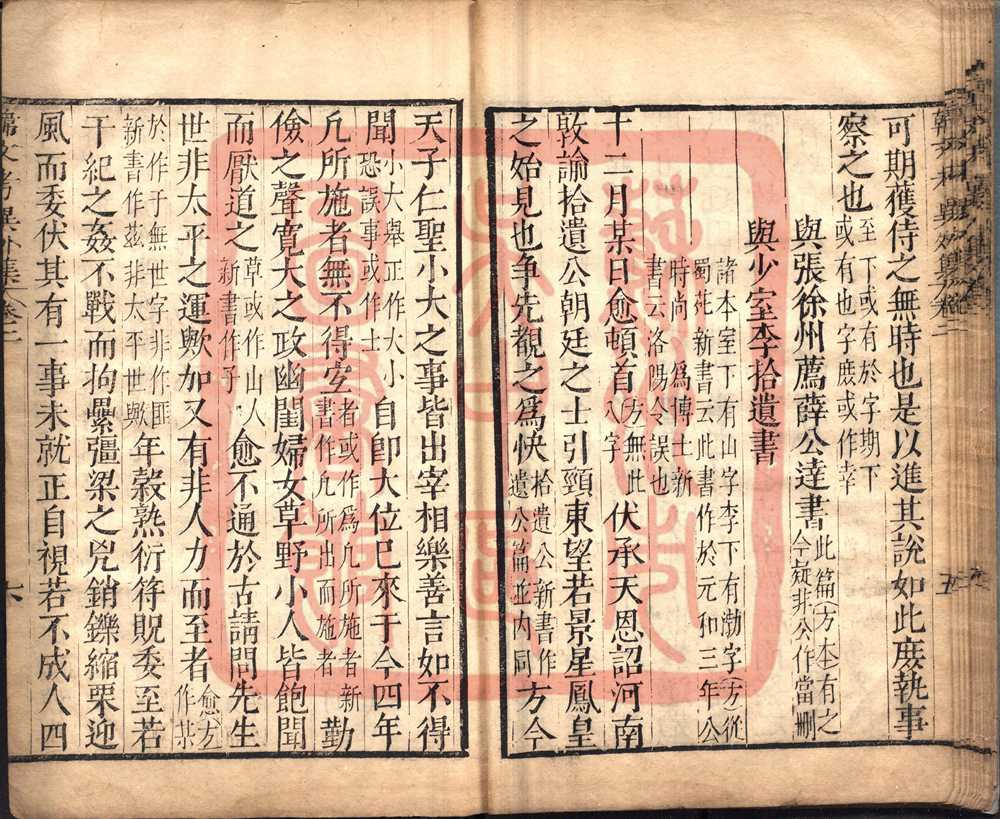 可期獲侍之無時也是以進其說如此庶執事
察之也至下或有於字期下或有也字庶或作幸
與張徐州薦薛公達書此篇方本有之今疑非公作當刪
與少室李拾遺書
諸本室下有山字李下有渤字方從
蜀苑新書云此書作於元和三年公
時尚爲博士新
書云洛陽令誤也
十二月某日愈頓首方無此八字伏承天恩詔河南
敦諭拾遺公朝廷之士引頸東望若景星鳳皇
之始見也争先覩之爲快拾遺公新書作遺公篇並内同方今
天子仁聖小大之事皆出宰相樂善言如不得
聞小大舉正作大小恐誤事或作士自即大位已來于今四年
凢所施者無不得宐者或作爲凢所施者新書作凢所出而施者勤
儉之聲寬大之政幽閨婦女草野小人皆飽聞
而厭道之草或作山人新書作子愈不通於古請問先生
世非太平之運歟加又有非人力而至者愈方作某
於作于無世字非作匪新書作茲非太平世歟年穀熟衍符貺委至若
干紀之姦不戰而拘纍彊梁之兇銷鑠縮栗迎
風而委伏其有一事未就正自視若不成人四
韓文考異外集卷二
六
五